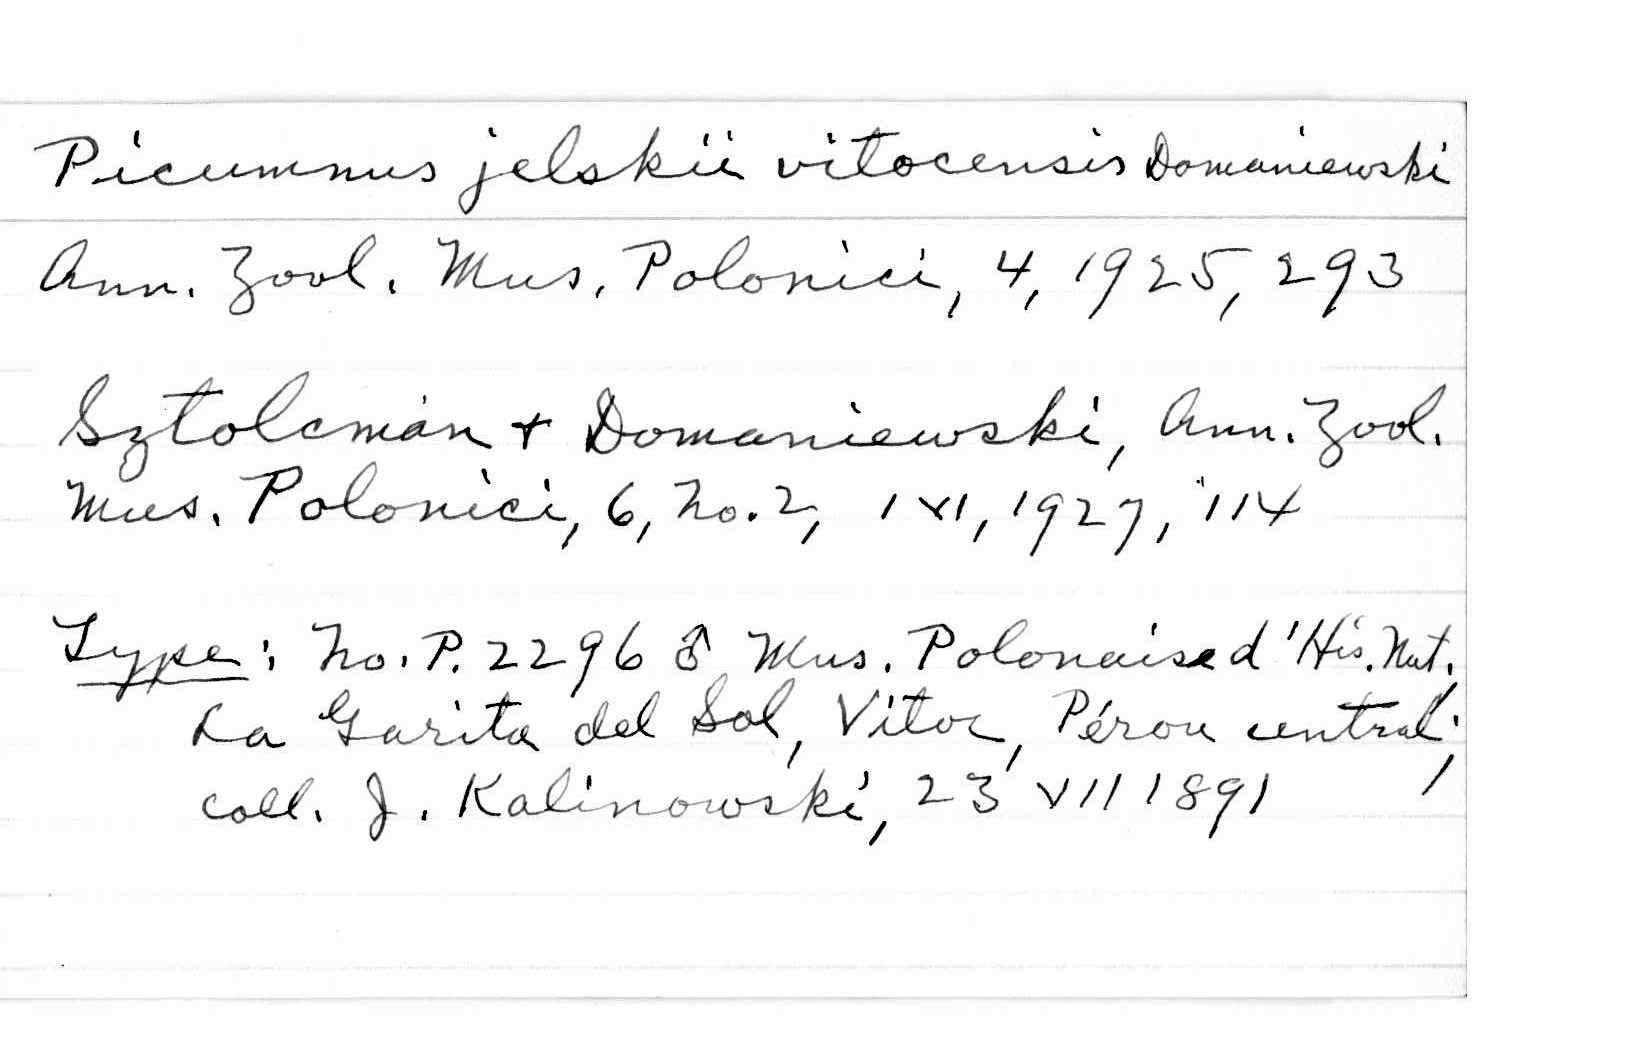 Picumnus jelskii vitocensis Domaniewski
Ann. Zool. Mus. Polonici, 4, 1925, 293
Sztolcman + Domaniewski, Ann. Zool.
Mus. Polonici, 6, No. 2, 1 XI, 1927, 114
Type: No. P. 2296 ♂ Mus. Polonaise d'His. Nat.
La Garita del Sol, Vitoc, Pérou central;
coll. J. Kalinowski, 23 VII 1891